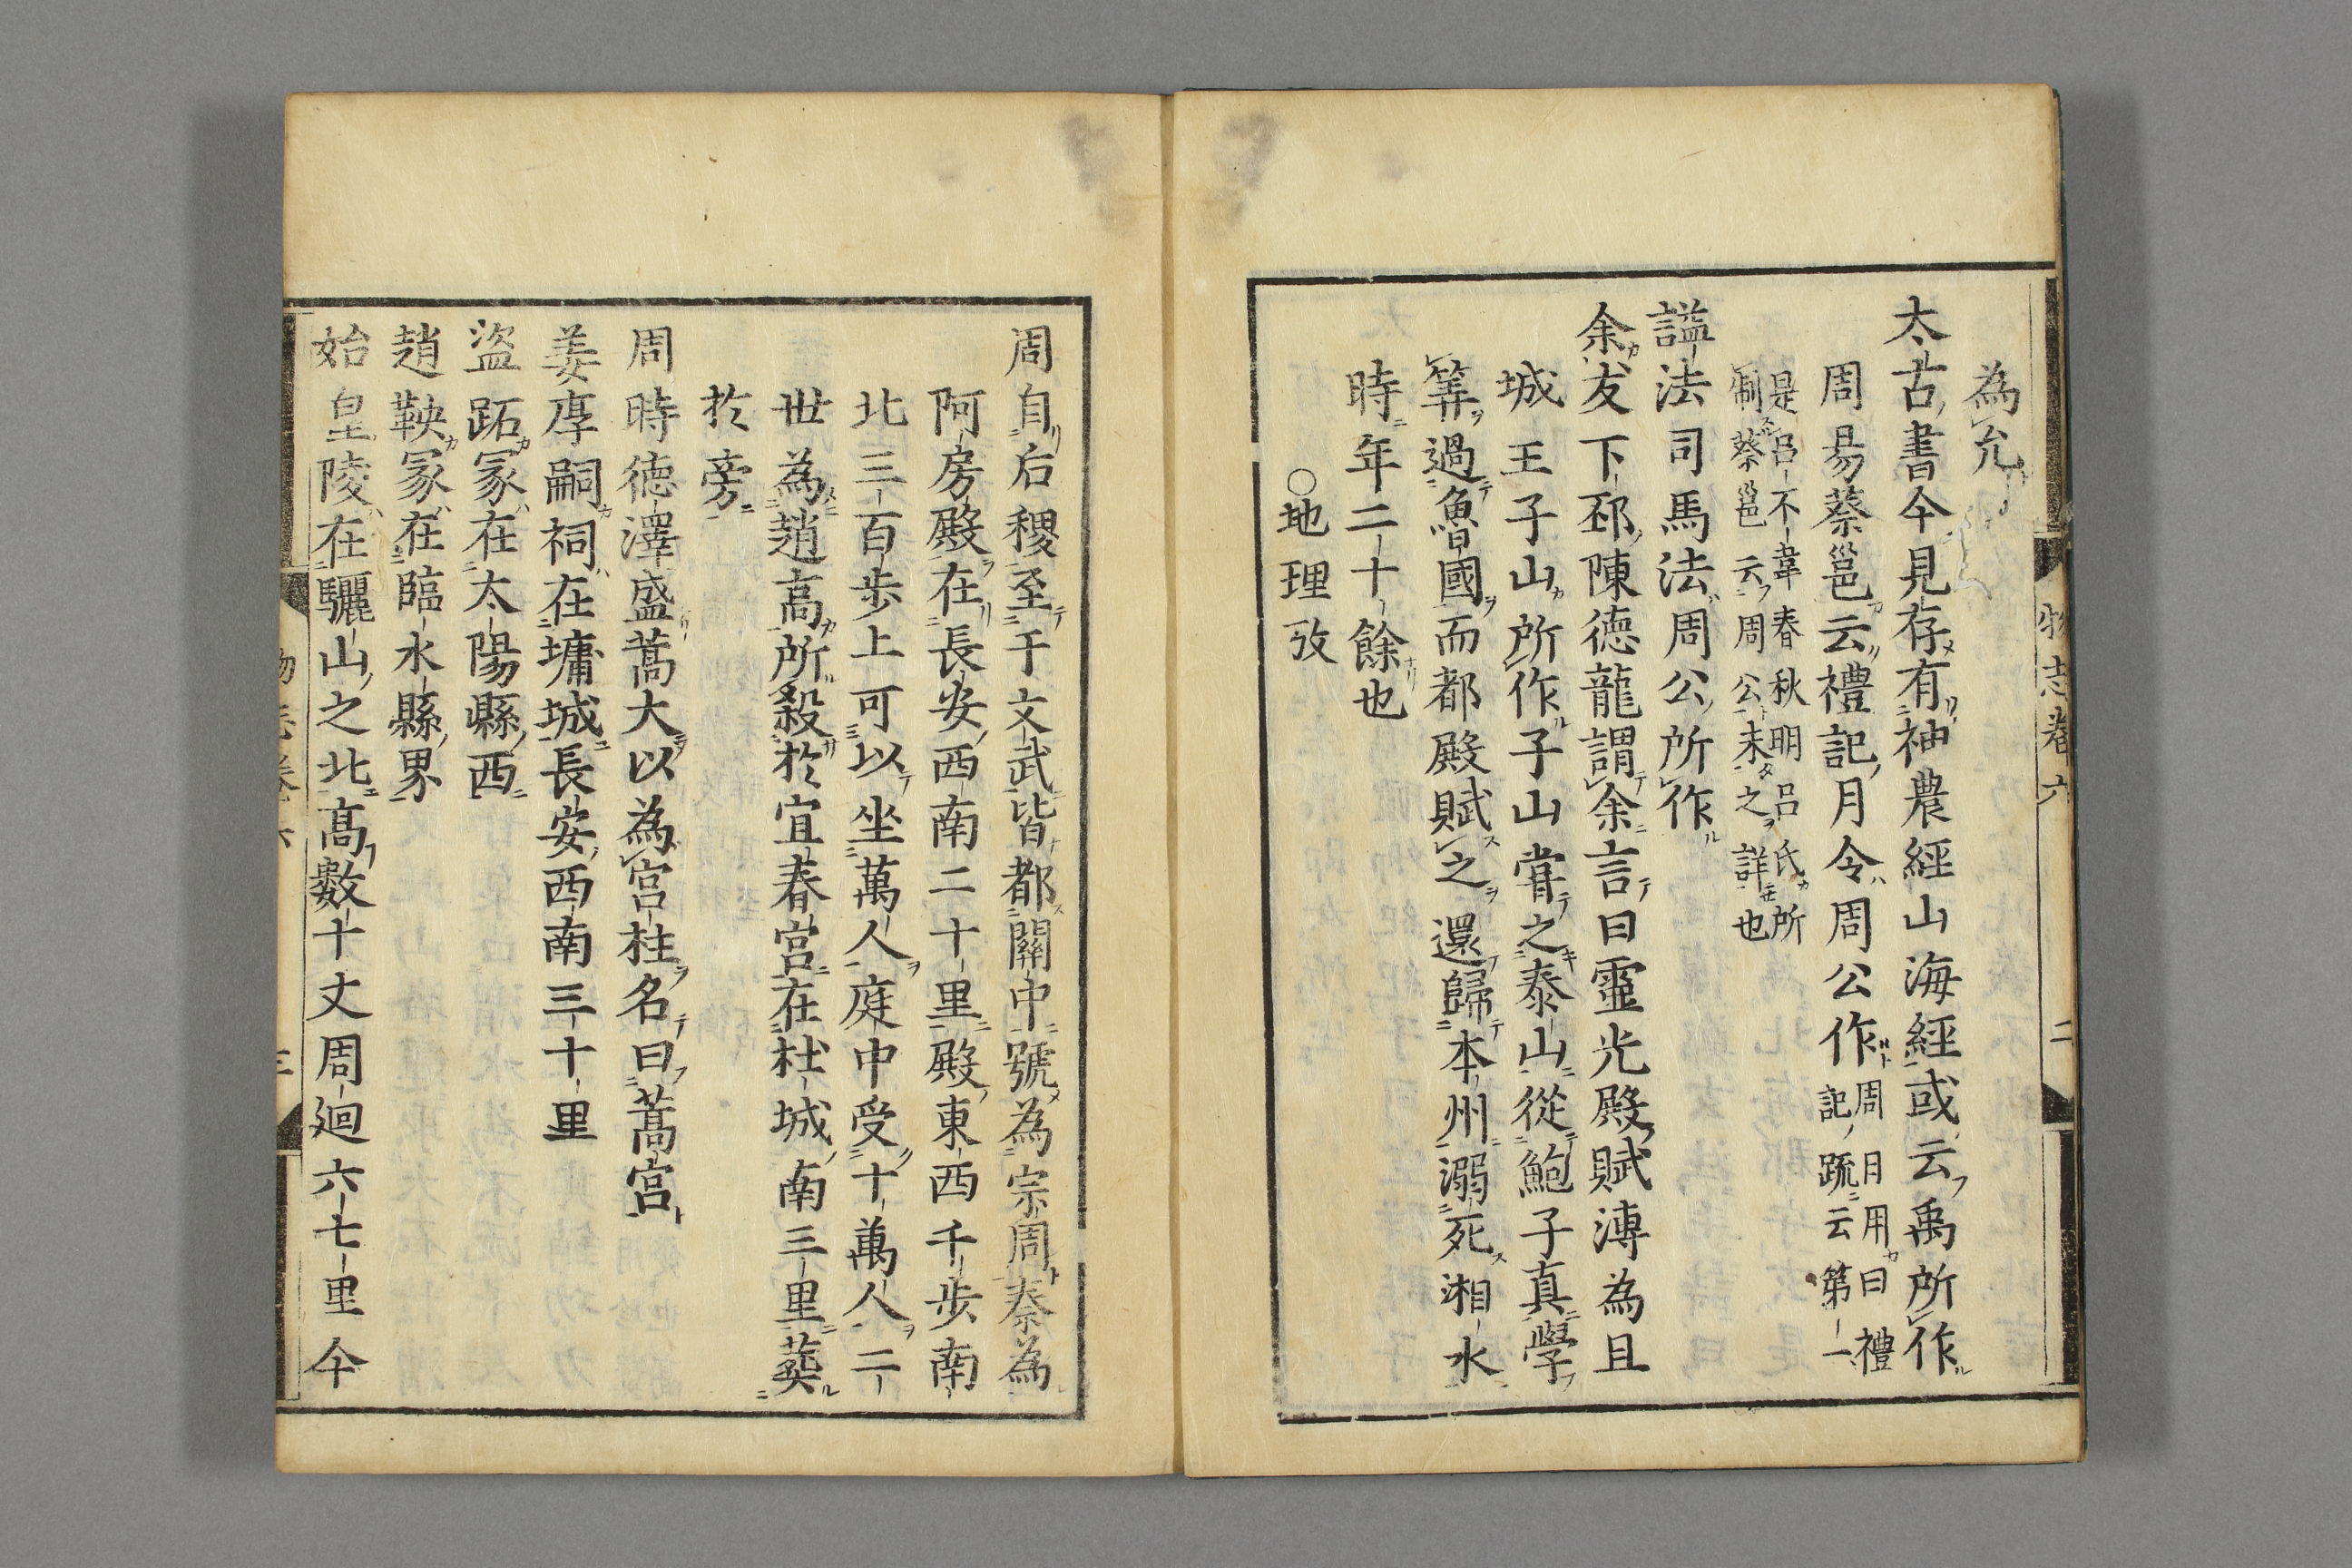 為允
太古書今見存有神農經山海經或云禹所作
周易蔡邕云禮記月令周公作周月用曰禮
記疏云第一
是呂不韋春秋明呂氏所
制蔡邕云周公末之詳也
謚法司馬法周公所作
余友下邳陳德龍謂余言曰靈光殿賦溥為且
城王子山所作子山甞之泰山從鮑子真學
筭過魯國而都殿賦之還歸本州溺死湘水
時年二十餘也
○地理攷
物志卷六
二
周自后稷至于文武皆都關中號為宗周秦為
阿房殿在長安西南二十里殿東西千步南
北三百步上可以坐萬人庭中受十萬人二
世為趙高所殺於宜春宮在杜城南三里葬
於旁
周時德澤盛蒿大以為宮柱名曰蒿宮
姜㕆嗣祠在墉城長安西南三十里
盜跖冢在太陽縣西
趙鞅冢在臨水縣界
始皇陵在驪山之北高數十丈周廻六七里今